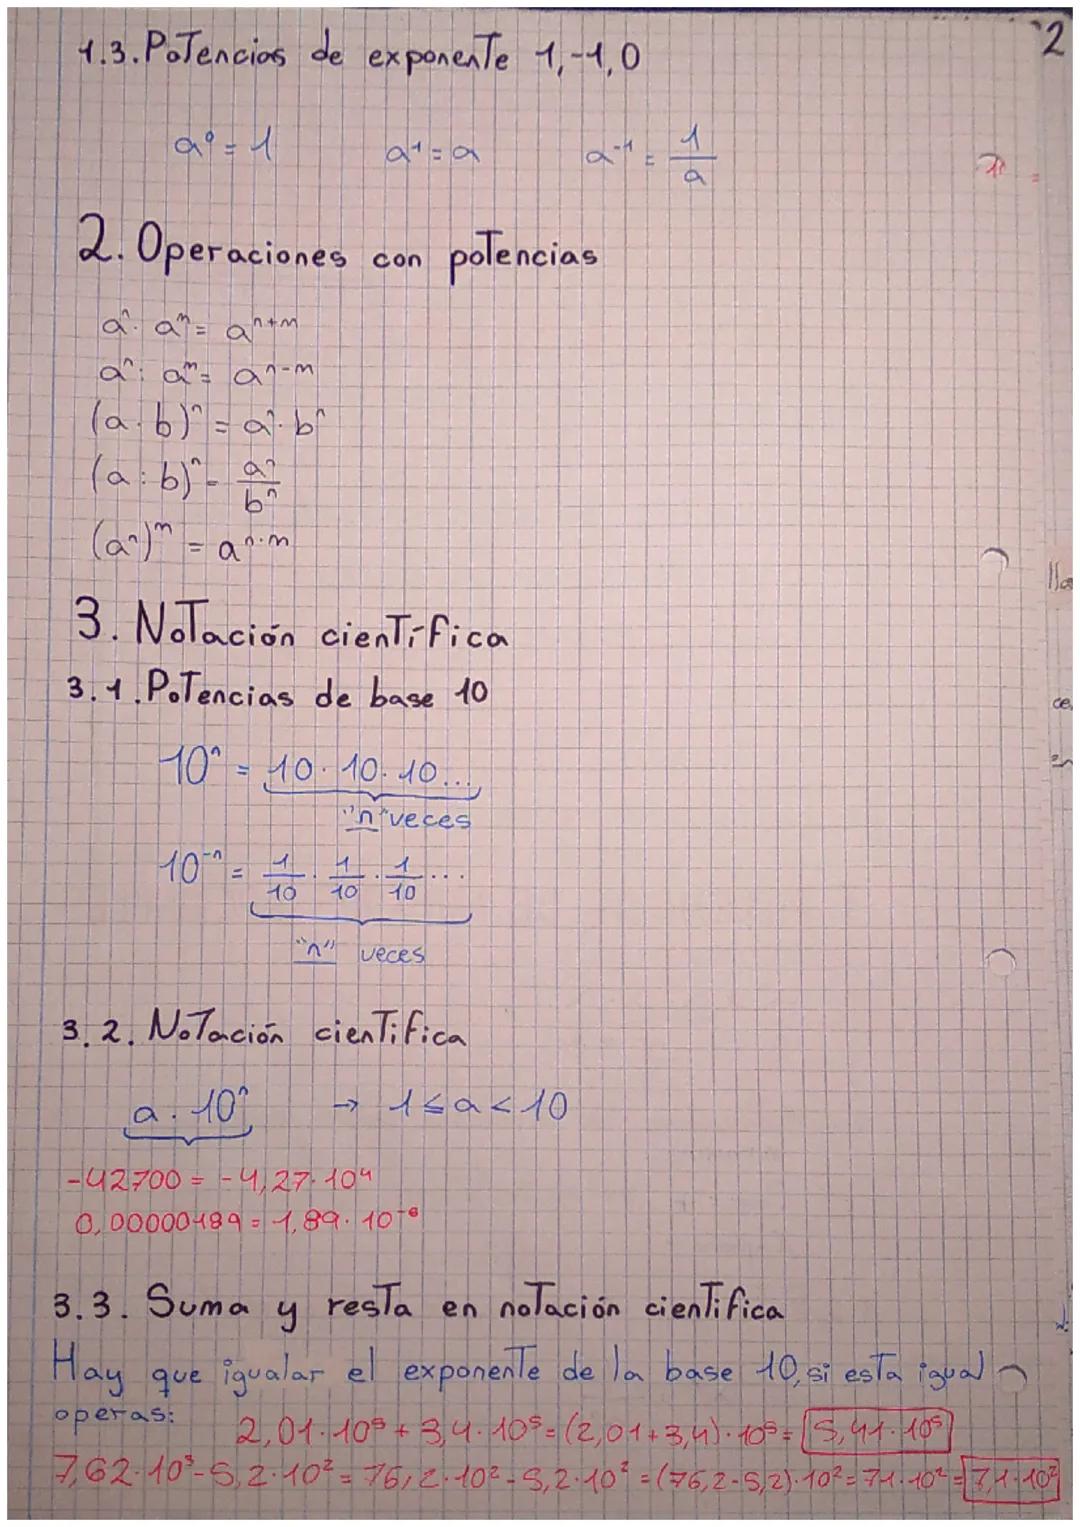 2
1.3. Potencias de exponente 1,-1,0
a⁰ = 1 a¹ = a a⁻¹ = 1/a
2. Operaciones con potencias
aⁿ · aᵐ = aⁿ⁺ᵐ
aⁿ : aᵐ = aⁿ⁻ᵐ
(a · b)ⁿ = aⁿ · bⁿ
(a : b)ⁿ = aⁿ/bⁿ
(aⁿ)ᵐ = aⁿ·ᵐ
3. Notación científica
3.1. Potencias de base 10
10ⁿ = 10 · 10 · 10...
"n" veces
10⁻ⁿ = 1/10 · 1/10 · 1/10 · ...
"n" veces
3.2. Notación cientifica
a · 10ⁿ → 1 ≤ a < 10
-42700 = -4,27 · 10⁴
0,00000189 = 1,89 · 10⁻⁶
3.3. Suma y resta en notación cientifica
Hay que igualar el exponente de la base 10, si esta igual
operas:
2,01 · 10⁵ + 3,4 · 10⁵ = (2,01 + 3,4) · 10⁵ = 5,41 · 10⁵
7,62 · 10³ - 5,2 · 10² = 76,2 · 10² - 5,2 · 10² = (76,2 - 5,2) · 10² = 71 · 10² = 7,1 · 10³